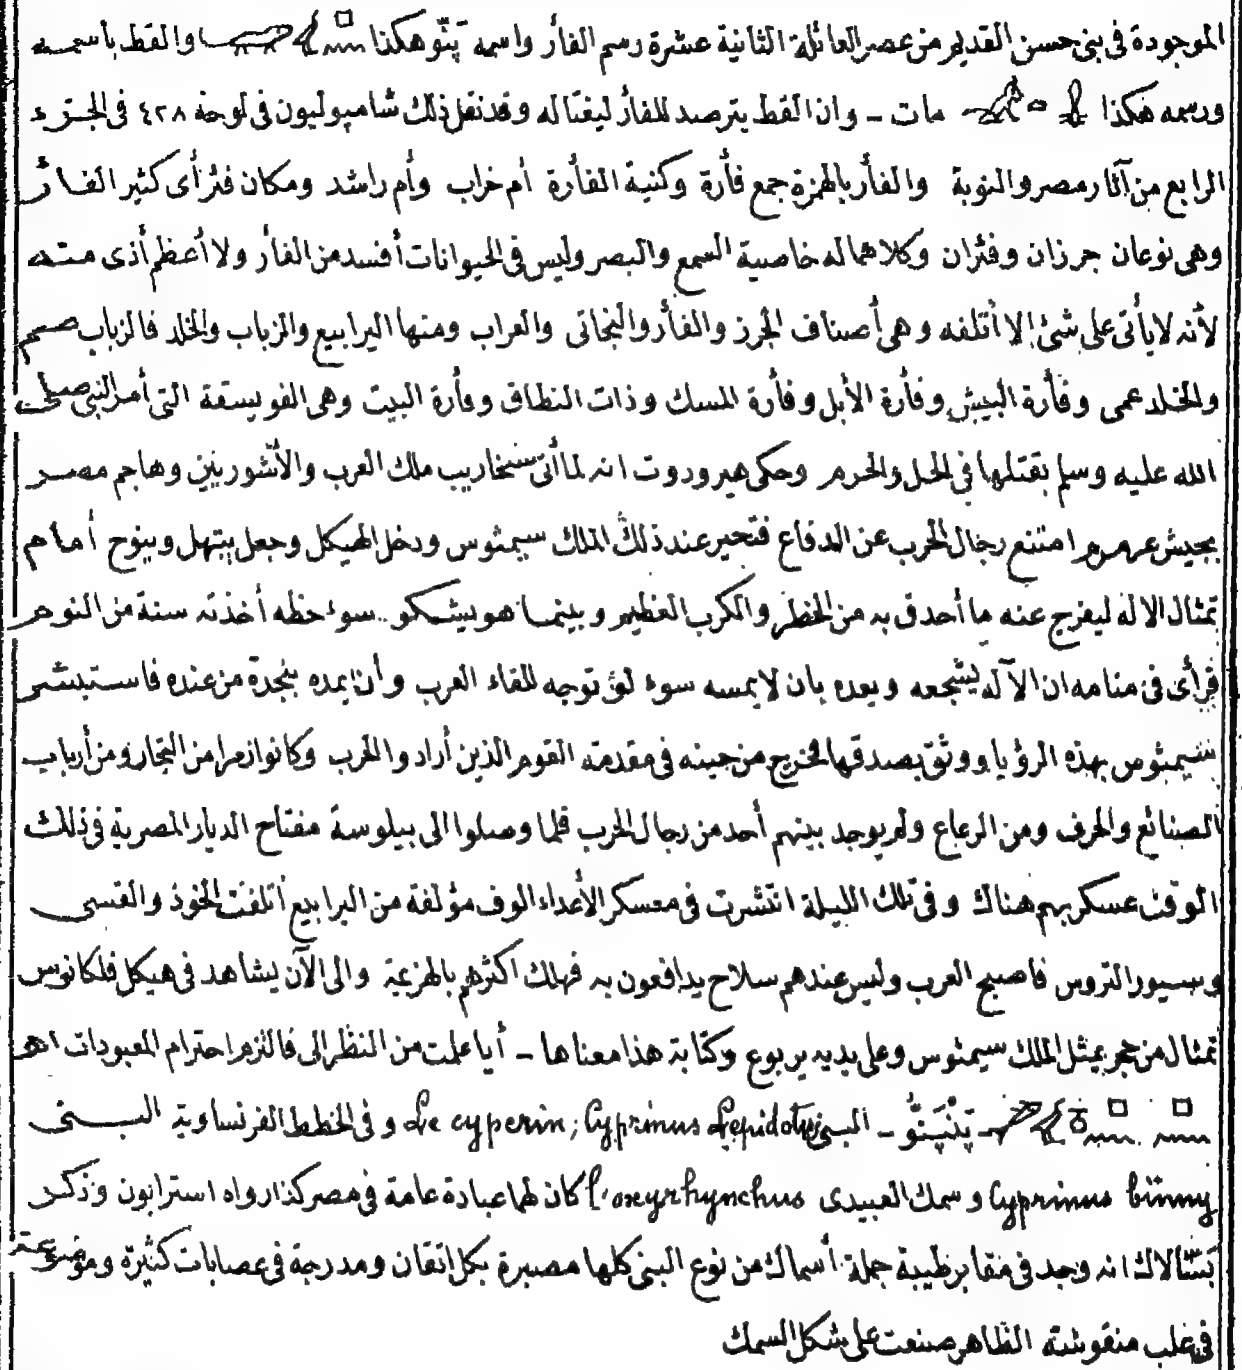 الموجودة فى بنى حسن القديم من عصر العائلة الثانية عشرة رسم الفأر واسمه پَنّو هكذا والقط باسمه
ورسمه هكذا مات ــ وان القط يترصد للفأر ليغتاله وقد نقل ذلك شامپوليون فى لوحة ٤٢٨ فى الجزء
الرابع من آثار مصر والنوبة والفأر بالهمزة جمع فأرة وكنية الفأرة أم خراب وأم راشد ومكان فئر أى كثير الفـأر
وهى نوعان جرزان وفئران وكلاهما له خاصية السمع والبصر وليس فى الحيوانات أفسد من الفأر ولا أعظم أذى منه
لأنه لا يأتى على شئ إلا أتلفه وهى أصناف الجرز والفأر والبخاتى والعراب ومنها اليرابيع والزباب والخلد فالزباب صم
والخلد عمى وفأرة البيش وفأرة الأبل وفأرة المسك وذات النطاق وفأرة البيت وهى الفويسقة التى أمر النبى صلى
الله عليه وسلم بقتلها فى الحل والحرم وحكى هيرودوت انه لما أتى سنخاريب ملك العرب والأشوريين وهاجم مصر
بجيش عرمرم امتنع رجال الحرب عن الدفاع فتحير عند ذلك الملك سيمثوس ودخل الهيكل وجعل يبتهل وينوح أمام
تمثال الاله ليفرج عنه ما أحدق به من الخطر والكرب العظيم وبينما هو يشكو سوء حظه أخذته سنة من النوم
فرأى فى منامه ان الآله يشجعه ويعده بان لا يمسه سوء لو توجه للقاء العرب وأن يمده بنجدة من عنده فاستبشر
سيمثوس بهذه الرؤيا ووثق بصدقها فخرج من حينه فى مقدمة القوم الذين أرادوا الحرب وكانوا زمرا من التجار ومن أرباب
الصنائع والحرف ومن الرعاع ولم يوجد بينهم أحد من رجال الحرب فلما وصلوا الى بيلوسة مفتاح الديار المصرية فى ذلك
الوقت عسكر بهم هناك وفى تلك الليلة انتشرت فى معسكر الأعداء الوف مؤلفة من اليرابيع أتلفت الخوذ والقسى
وسيور التروس فاصبح العرب وليس عندهم سلاح يدافعون به فهلك اكثرهم بالهزيمة والى الآن يشاهد فى هيكل فلكانوس
تمثال من حجر يمثل الملك سيمثوس وعلى يديه يربوع وكتابة هذا معناها ــ أيا علمت من النظر الى فالتزم احترام المعبودات اهـ
پَنْپَنُّو ــ البنى Le cyperin; Cyprinus Lepidotus وفى الخطط الفرنساوية البـنى
Cyprinus binny وسمك العبيدى l'oxyrhynchus كان لهما عبادة عامة فى مصر كذا رواه استرابون وذكر
بَسّالاك انه وجد فى مقابر طيبة جملة أسماك من نوع البنى كلها مصبرة بكل اتقان ومدرجة فى عصابات كثيرة وموضوعة
فى علب منقوشة الظاهر صنعت على شكل السمك